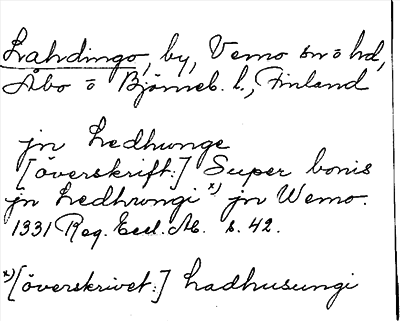 Lahdingo, by, Vemo sn o hd,
Åbo o Björneb. l., Finland
jn Ledhunge
[överskrift:] Super bonis
jn Ledhrungi x) jn Wemo.
1331 Reg. Eccl. Ab. s. 42.
x) [överskrivet:] Ladhusungi